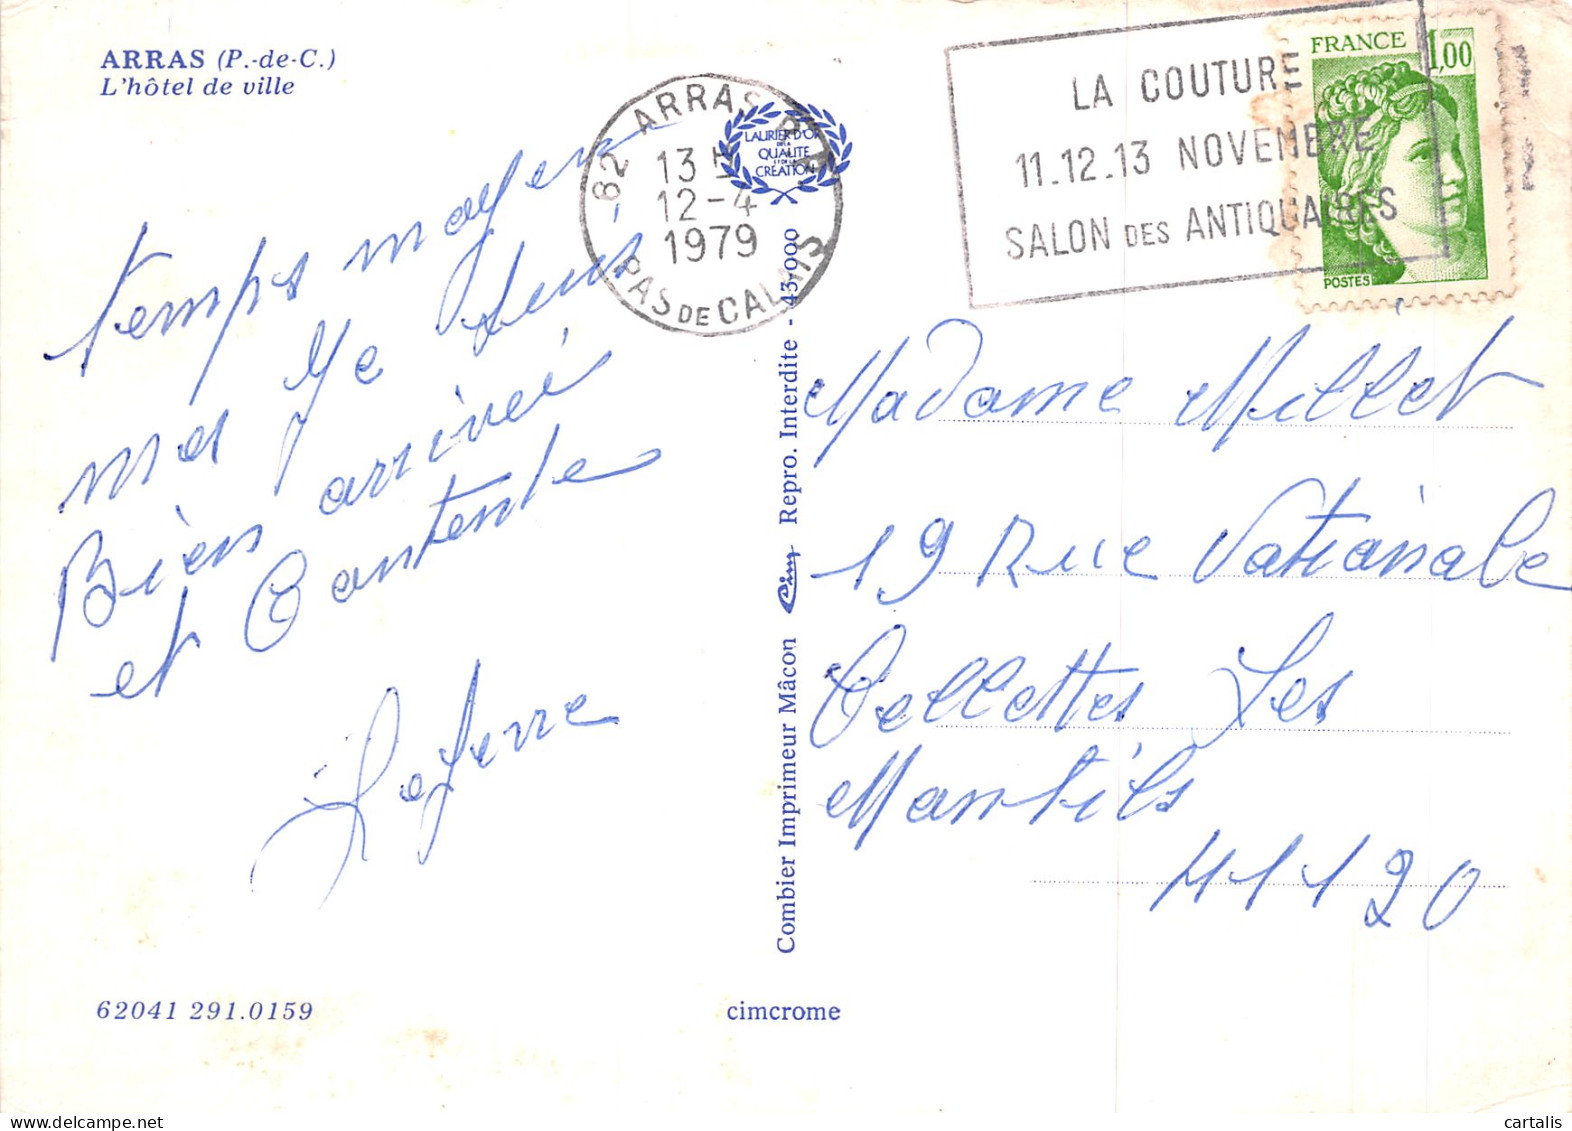 ARRAS (P.-de-C.)
L'hôtel de ville
62 ARRAS R.P.
13 H
12-4
1979
PAS DE CALAIS
LAURIER D'OR
DE LA
QUALITÉ
ET DE LA
CRÉATION
LA COUTURE
11_12_13 NOVEMBRE
SALON DES ANTIQUAIRES
FRANCE 1,00
POSTES
temps moyen
mai Je suis
Bien arrivée
et Contente
Lefevre
Combier Imprimeur Mâcon Cim Repro. Interdite - 43-000
Madame Millet
19 Rue Nationale
Cellettes Les
Montils
41120
62041 291.0159
cimcrome
cartalis